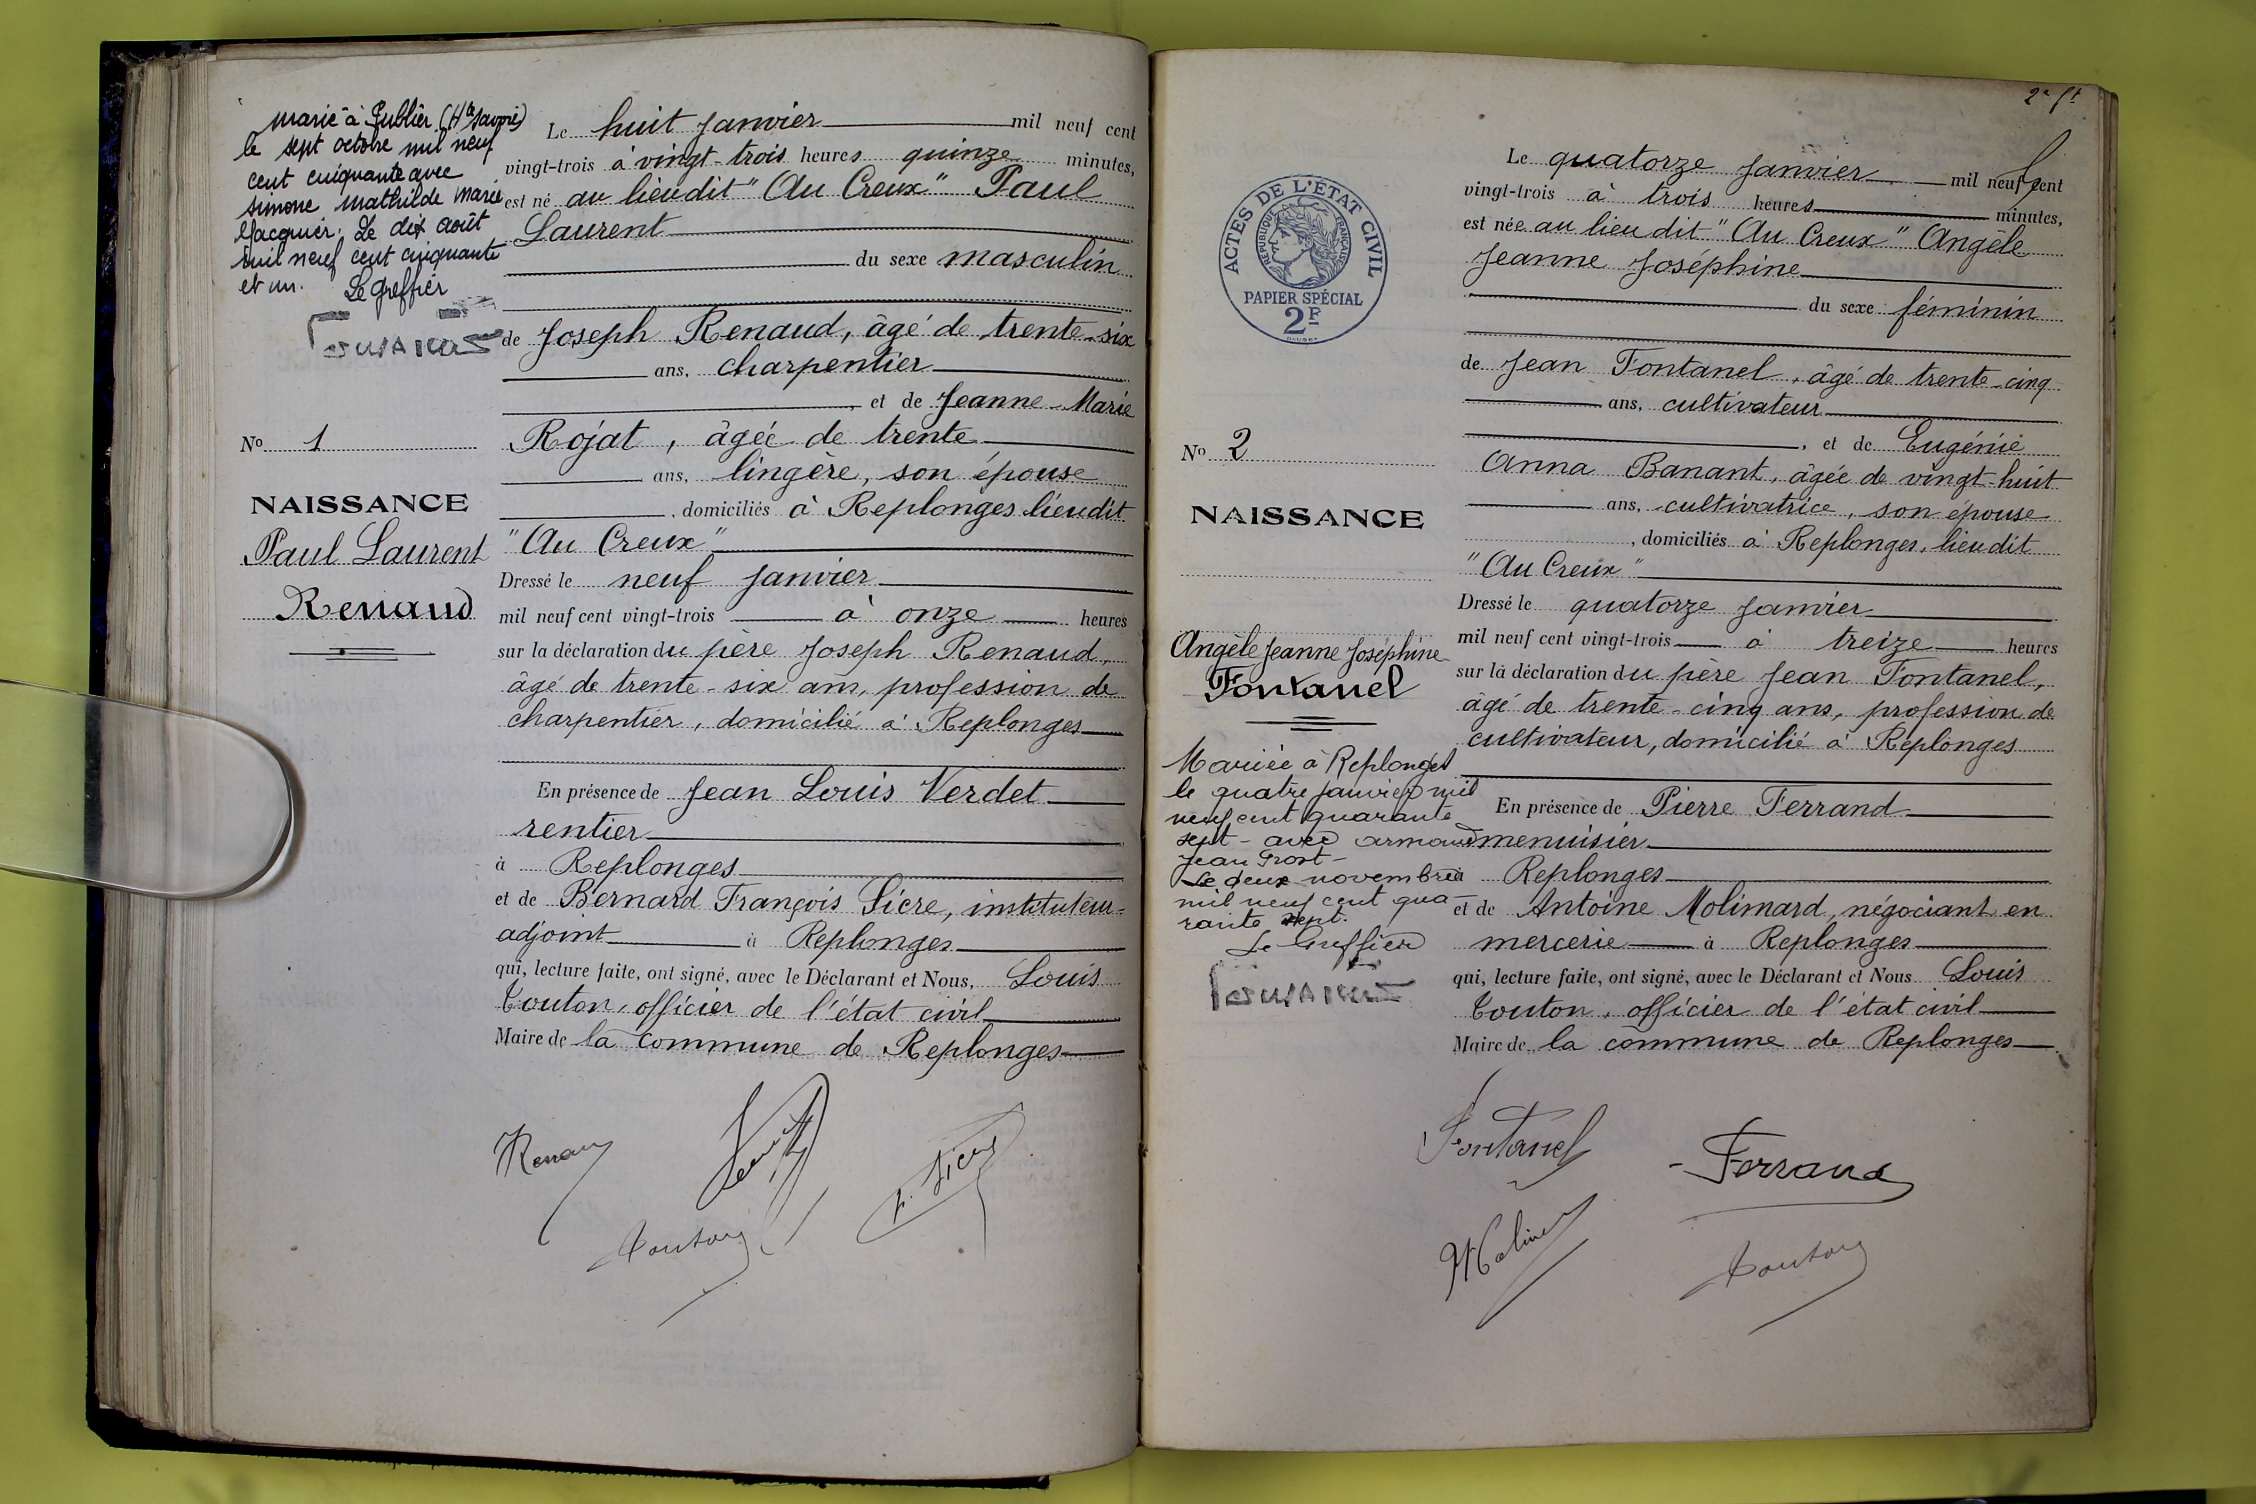 marié à Publier (Hte Savoie)
le sept octobre mil neuf
cent cinquante avec
Simone Mathilde Marie
Jacquier. Le dix août
mil neuf cent cinquante
et un. Le Greffier
No 1
NAISSANCE
Paul Laurent
Renaud
Le huit Janvier mil neuf cent
vingt-trois à vingt-trois heures quinze minutes,
est né au lieu dit "Au Creux" Paul
Laurent
du sexe masculin
de Joseph Renaud, âgé de trente-six
ans, charpentier
, et de Jeanne-Marie
Rojat, âgée de trente
ans, lingère, son épouse
, domiciliés à Replonges lieu dit
"Au Creux"
Dressé le neuf Janvier
mil neuf cent vingt-trois à onze heures
sur la déclaration du père Joseph Renaud,
âgé de trente-six ans, profession de
charpentier, domicilié à Replonges
En présence de Jean Louis Verdet
rentier
à Replonges
et de Bernard François Sicre, instituteur-
adjoint à Replonges
qui, lecture faite, ont signé, avec le Déclarant et Nous, Louis
Touton, officier de l'état civil
Maire de la commune de Replonges
Renaud
F. Sicre
Touton
2e ft
ACTES DE L'ÉTAT CIVIL
RÉPUBLIQUE FRANÇAISE
PAPIER SPÉCIAL
2F
No 2
NAISSANCE
Angèle Jeanne Joséphine
Fontanel
Mariée à Replonges
le quatre janvier mil
neuf cent quarante
sept - avec Armand
Jean Prost -
Le deux novembre
mil neuf cent qua
rante sept.
Le Greffier
Le quatorze Janvier mil neuf cent
vingt-trois à trois heures minutes,
est née au lieu dit "Au Creux" Angèle
Jeanne Joséphine
du sexe féminin
de Jean Fontanel, âgé de trente-cinq
ans, cultivateur
, et de Eugénie
Anna Banant, âgée de vingt-huit
ans, cultivatrice, son épouse
, domiciliés à Replonges, lieu dit
"Au Creux"
Dressé le quatorze Janvier
mil neuf cent vingt-trois à treize heures
sur la déclaration du père Jean Fontanel,
âgé de trente-cinq ans, profession de
cultivateur, domicilié à Replonges
En présence de Pierre Ferrand
menuisier
à Replonges
et de Antoine Molimard, négociant en
mercerie à Replonges
qui, lecture faite, ont signé, avec le Déclarant et Nous Louis
Touton, officier de l'état civil
Maire de la commune de Replonges
Fontanel
Ferrand
Touton